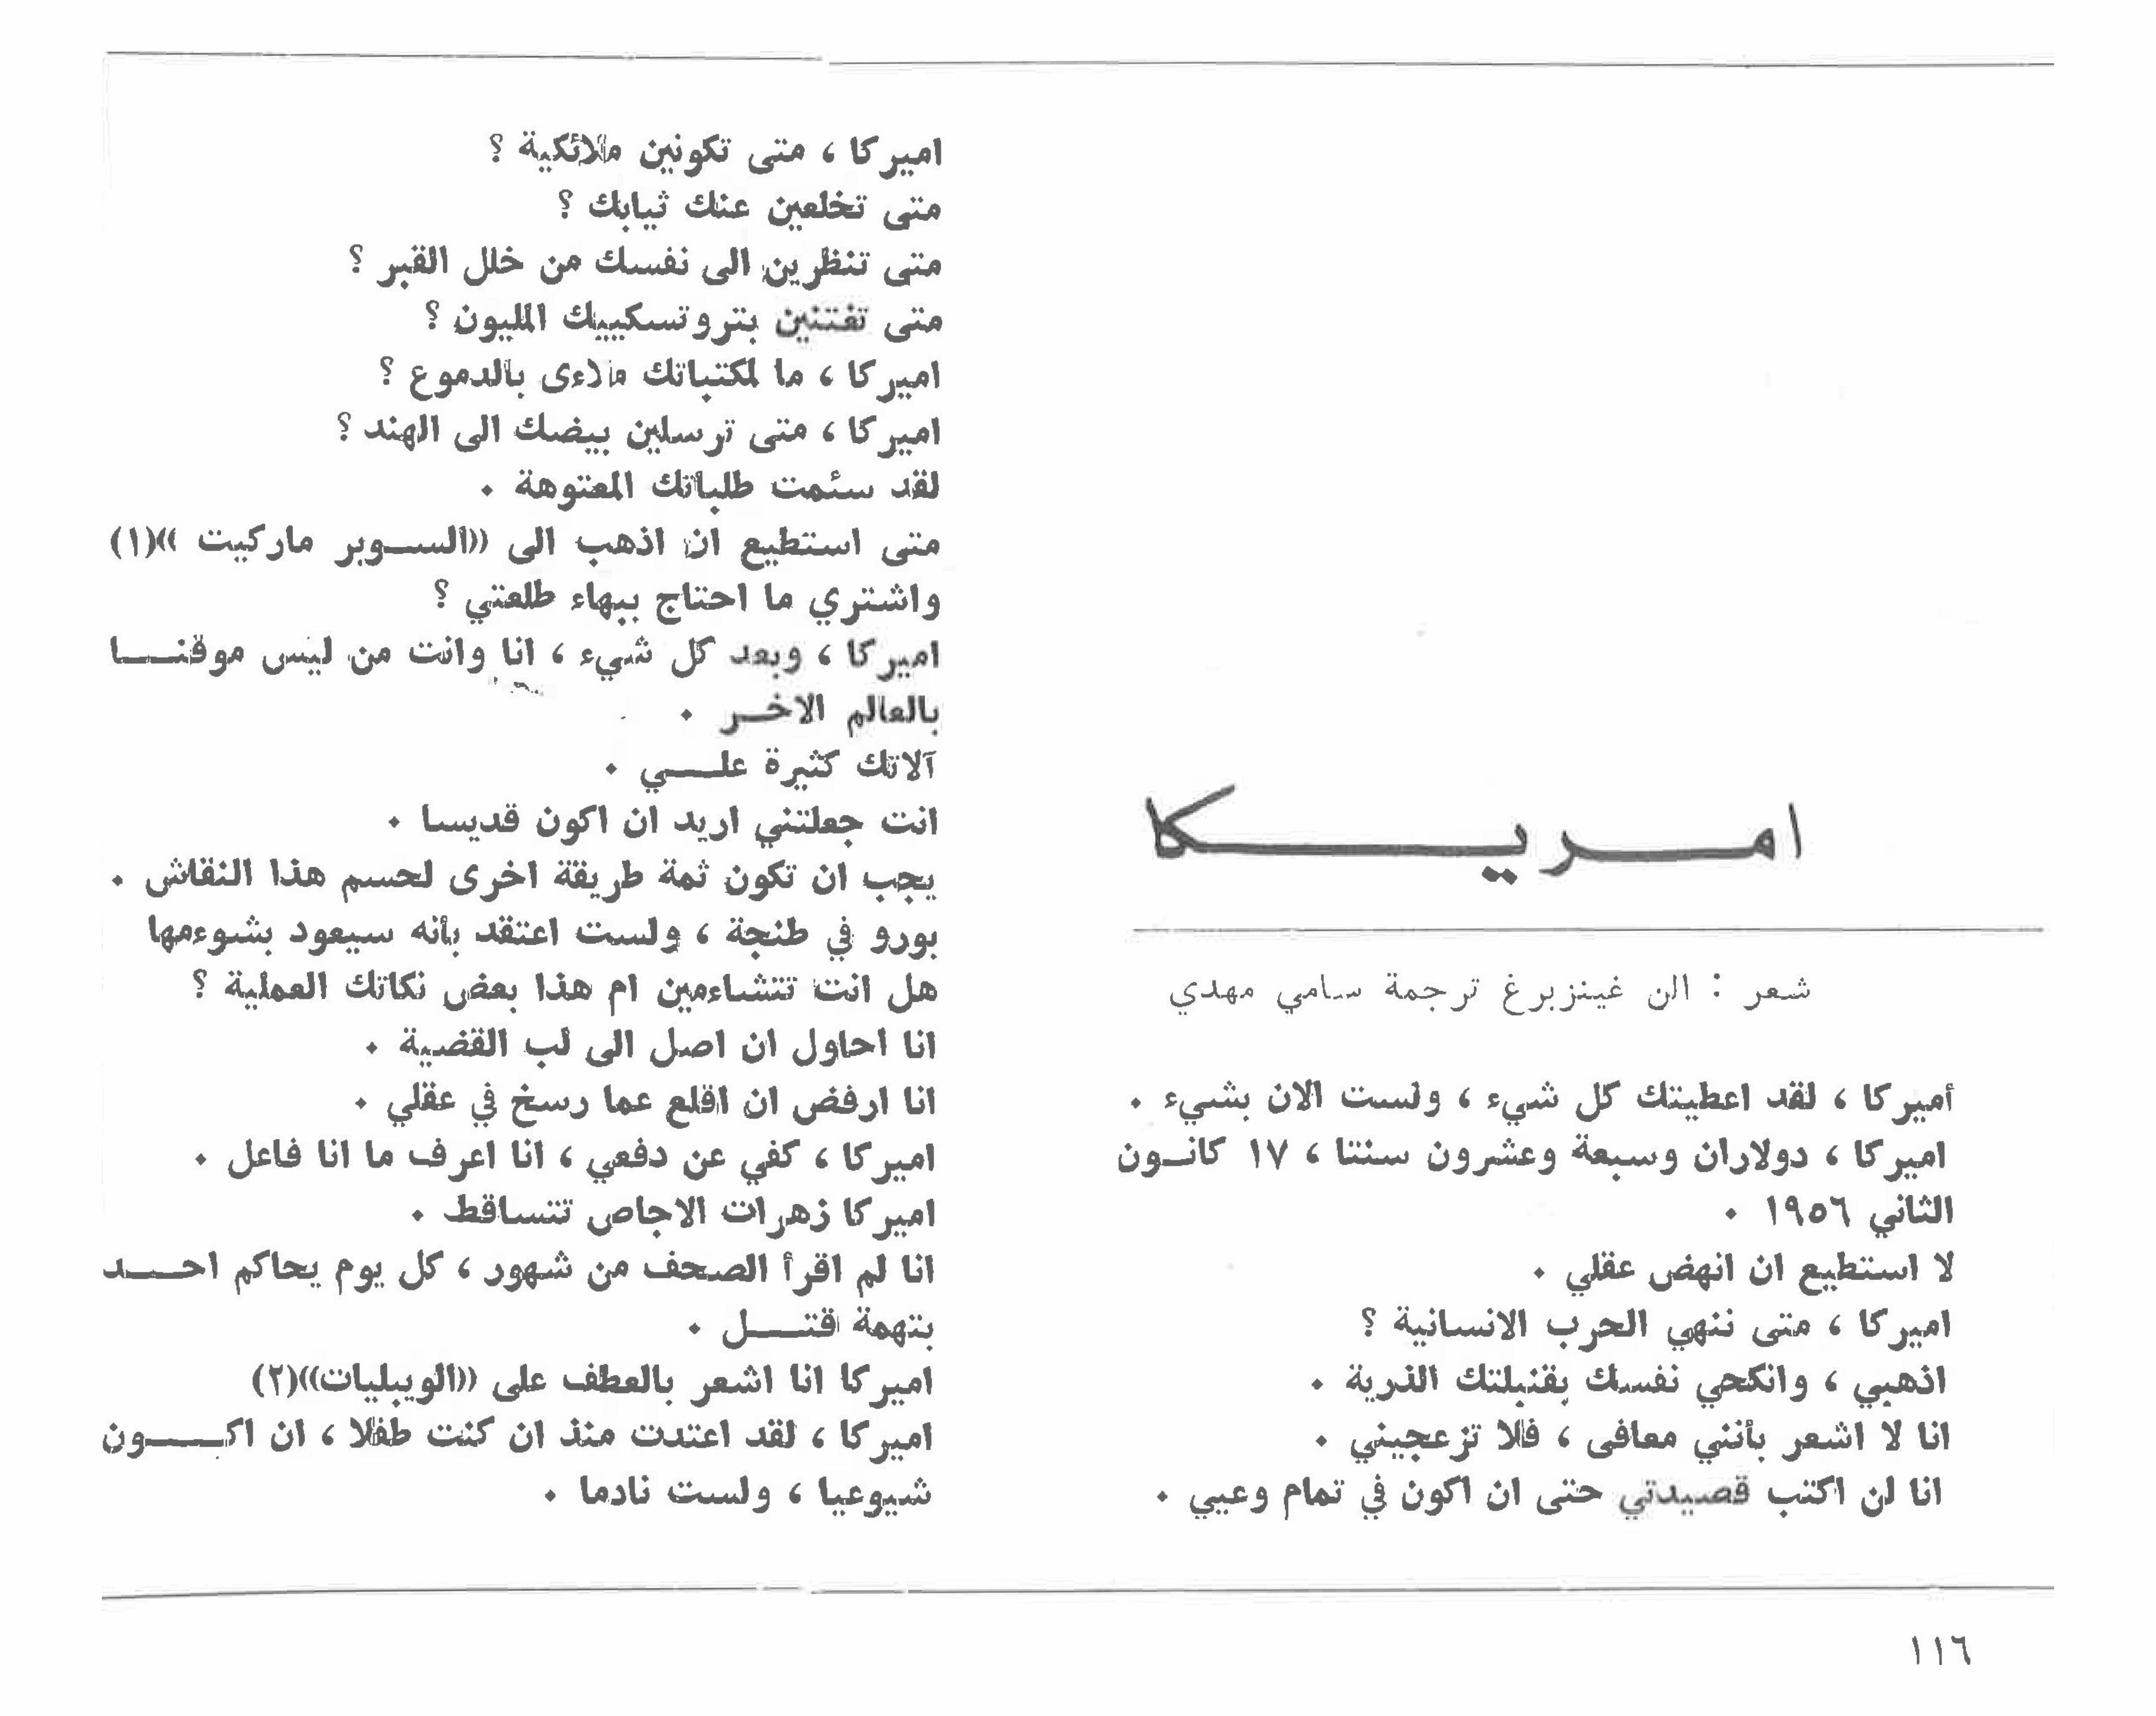 امريكا
شعر : الن غينزبرغ ترجمة سامي مهدي
أميركا ، لقد اعطيتك كل شيء ، ولست الان بشيء .
اميركا ، دولاران وسبعة وعشرون سنتا ، ١٧ كانون
الثاني ١٩٥٦ .
لا استطيع ان انهض عقلي .
اميركا ، متى ننهي الحرب الانسانية ؟
اذهبي ، وانكحي نفسك بقنبلتك الذرية .
انا لا اشعر بأنني معافى ، فلا تزعجيني .
انا لن اكتب قصيدتي حتى ان اكون في تمام وعيي .
اميركا ، متى تكونين ملائكية ؟
متى تخلعين عنك ثيابك ؟
متى تنظرين الى نفسك من خلل القبر ؟
متى تفتنين بتروتسكييك المليون ؟
اميركا ، ما لمكتباتك ملاءى بالدموع ؟
اميركا ، متى ترسلين بيضك الى الهند ؟
لقد سئمت طلباتك المعتوهة .
متى استطيع ان اذهب الى ((السوبر ماركيت ))(١)
واشتري ما احتاج ببهاء طلعتي ؟
اميركا ، وبعد كل شيء ، انا وانت من ليس موقنا
بالعالم الاخر .
آلاتك كثيرة علي .
انت جعلتني اريد ان اكون قديسا .
يجب ان تكون ثمة طريقة اخرى لحسم هذا النقاش .
بورو في طنجة ، ولست اعتقد بأنه سيعود بشوءمها
هل انت تتشاءمين ام هذا بعض نكاتك العملية ؟
انا احاول ان اصل الى لب القضية .
انا ارفض ان اقلع عما رسخ في عقلي .
اميركا ، كفي عن دفعي ، انا اعرف ما انا فاعل .
اميركا زهرات الاجاص تتساقط .
انا لم اقرأ الصحف من شهور ، كل يوم يحاكم احد
بتهمة قتل .
اميركا انا اشعر بالعطف على ((الويبليات))(٢)
اميركا ، لقد اعتدت منذ ان كنت طفلا ، ان اكون
شيوعيا ، ولست نادما .
١١٦